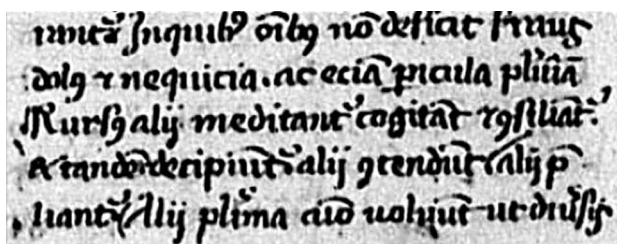 untᷣ Inquibꝫ oı̄bꝫ nō deficit fraus
dolꝰ ⁊ nequicia. ac eciā ꝑicula plı̄ıā
Rursꝰ alij meditantᷣ cogitāt ⁊ ꝯsiliātᷣ.
⁊ tandē decipiūtᷣ alij ꝯtendūt alij p̄
liantᷣ Alij plı̄ma aıō uoluūt ut diu͛sis